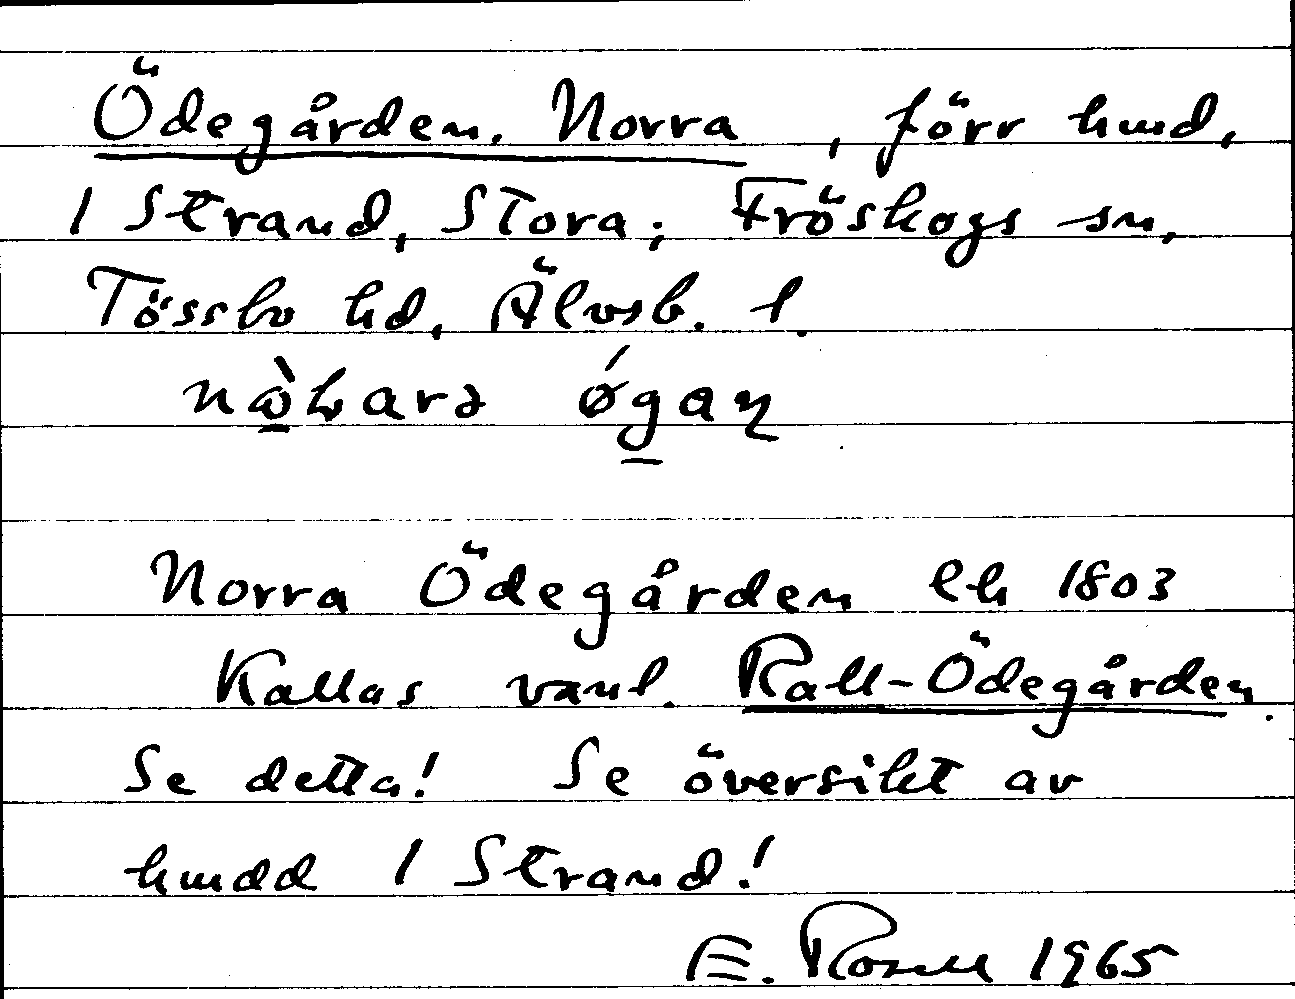 Ödegården, Norra, förr hmd,
/ Strand, Stora; Fröskogs sn,
Tössbo hd, Älvsb. l.
nə̀ḵarə ǿg̱aṇ
Norra Ödegården lh 1803
Kallas vanl. Rall-Ödegården.
Se detta! Se översikt av
hmdd / Strand!
E. Rosell 1965